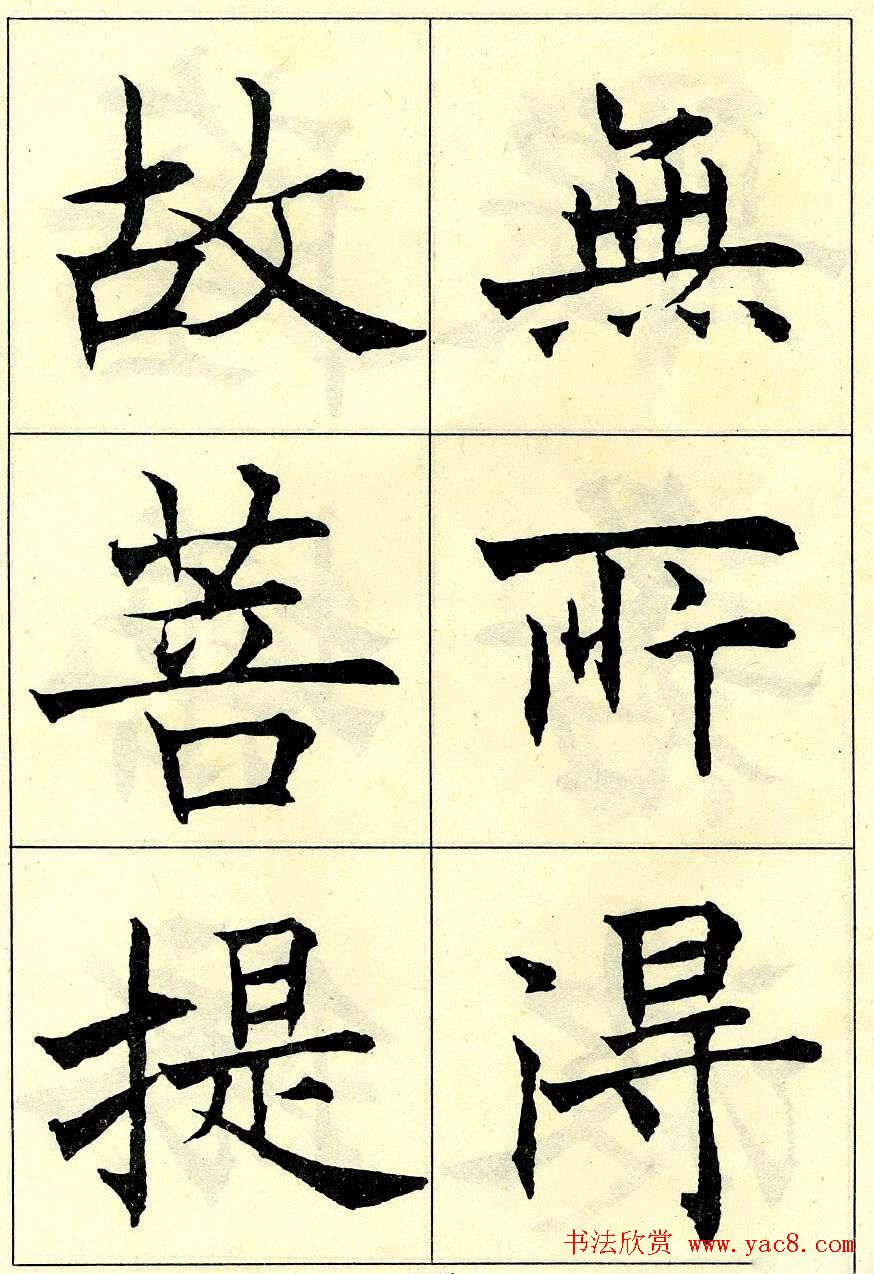 無所得
故菩提
书法欣赏 www.yac8.com